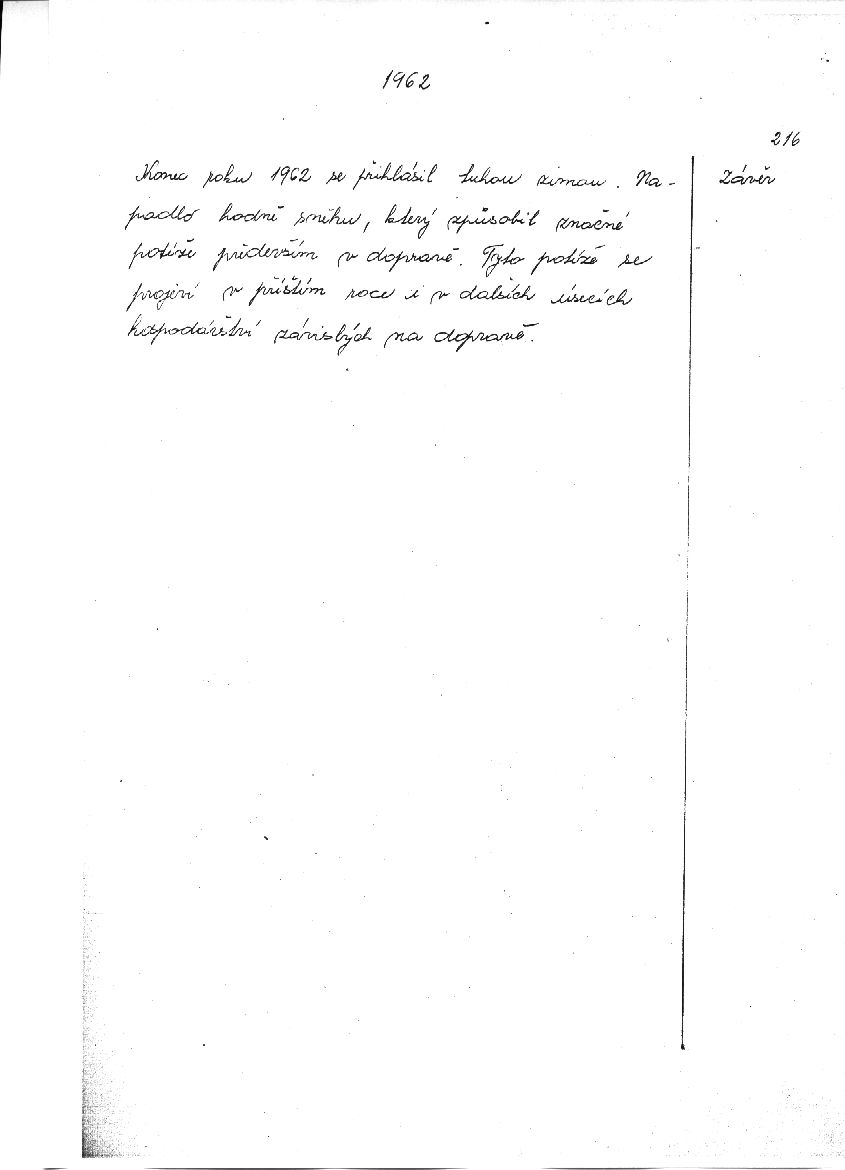 1962
216
Konec roku 1962 se přihlásil tuhou zimou. Na-
Závěr
padlo hodně sněhu, který způsobil značné
potíže především v dopravě. Tyto potíže se
projeví v příštím roce i v dalších úsecích
hospodářství závislých na dopravě.